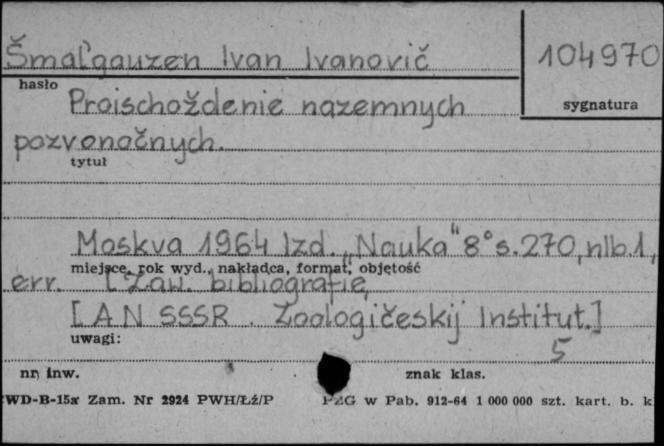 Šmal'gauzen Ivan Ivanovič
104970
hasło
sygnatura
Proischoždenie nazemnych
pozvonočnych.
tytuł
Moskva 1964 Izd. „Nauka" 8° s. 270, nlb. 1,
miejsce, rok wyd., nakładca, format, objętość
err. [Zaw. bibliografię]
[AN SSSR. Zoologičeskij Institut.]
uwagi:
5
nr inw.
znak klas.
WD-B-15a Zam. Nr 2924 PWH/Łź/P
PZG w Pab. 912-64 1 000 000 szt. kart. b. k